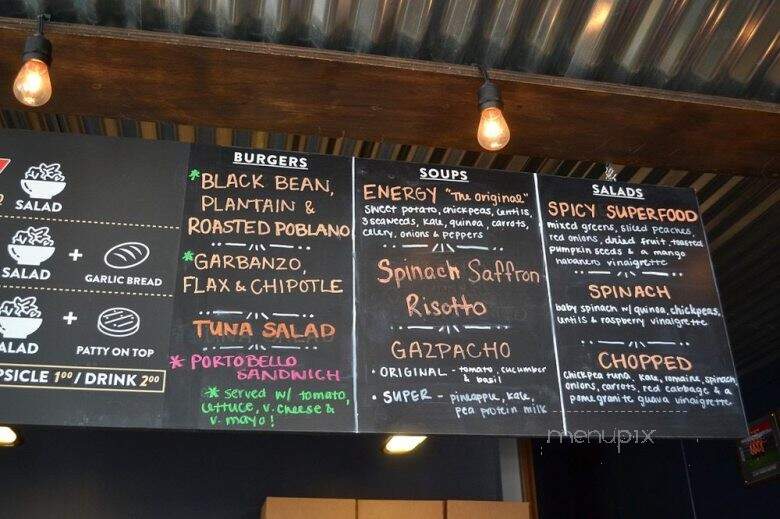 SALAD
SALAD
+
GARLIC BREAD
SALAD
+
PATTY ON TOP
PSICLE 1.00 / DRINK 2.00
BURGERS
* BLACK BEAN,
PLANTAIN &
ROASTED POBLANO
* GARBANZO,
FLAX & CHIPOTLE
TUNA SALAD
* PORTOBELLO
SANDWICH
* served w/ tomato,
lettuce, v. cheese &
v. mayo!
SOUPS
ENERGY "The original"
sweet potato, chickpeas, lentils,
3 seaweeds, kale, quinoa, carrots,
celery, onions & peppers
Spinach Saffron
Risotto
GAZPACHO
• ORIGINAL - tomato, cucumber
& basil
• SUPER - pineapple, kale,
pea protein milk
SALADS
SPICY SUPERFOOD
mixed greens, sliced peaches,
red onions, dried fruit, toasted
pumpkin seeds & a mango
habanero vinaigrette
SPINACH
baby spinach w/ quinoa, chickpeas,
lentils & raspberry vinaigrette
CHOPPED
chickpea tuna, kale, romaine, spinach,
onions, carrots, red cabbage & a
pomegranite guava vinaigrette
menupix